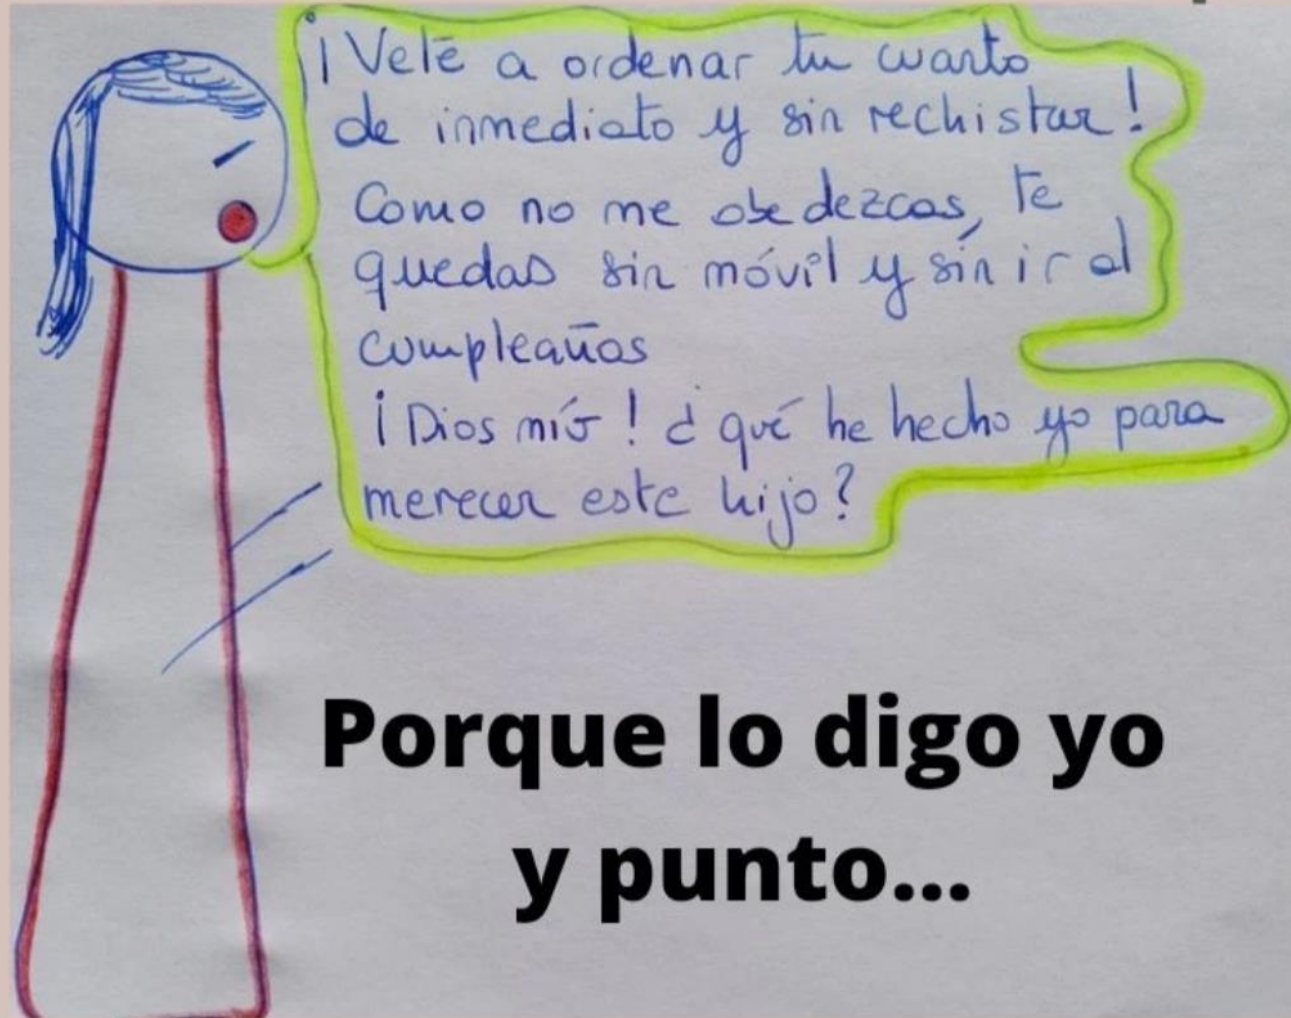 ¡Vete a ordenar tu cuarto
de inmediato y sin rechistar!
Como no me obedezcas, te
quedas sin móvil y sin ir al
cumpleaños
¡Dios mío! ¿qué he hecho yo para
merecer este hijo?
Porque lo digo yo
y punto...